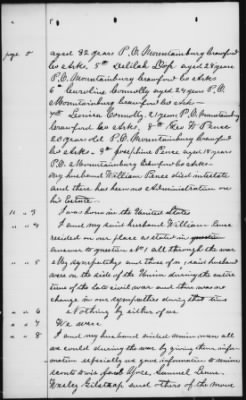 5
page 5 aged 32 years P.O. Mountainburg Crawford
Co Arks. 5th Delilah aged 28 years
P.O. Mountainburg Crawford Co Arks
6th Caroline Connolly aged 24 years P.O.
Mountainburg Crawford Co Ark
7th Louisa Connolly, 21 years P.O. Mountainburg
Crawford Co Arks, 8th W Pence
20 years old P.O. Mountainburg Crawford
Co Arks - 9th Josephine Pence aged 18 years
P.O. Mountainburg Crawford Co Arks -
my husband William Pence died intestate
and there has been no Administration on
his Estate.
" " 3 I was born in the United States
" " 4 I and my said husband William Pence
resided on our place as stated in
answer to question No 1, all through the war
" " 5 My sympathies and those of my said husband
were on the side of the Union during the entire
time of the late civil war and there was no
change in our sympathies during that time
" " 6 Nothing by either of us
" " 7 We were
" " 8 I and my husband aided union men all
we could during the war by giving them infor-
mation especially we gave information to union
Samuel
Wesley Gilstrap and others of the move